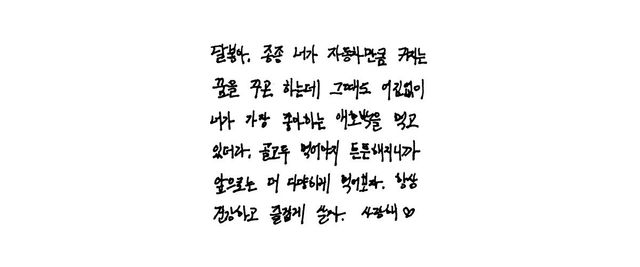 달봉아. 종종 너가 자동차만큼 커지는
꿈을 꾸곤 하는데 그때도 어김없이
너가 가장 좋아하는 애호박을 먹고
있더라. 골고루 먹어야지 튼튼해지니까
앞으로는 더 다양하게 먹어보자. 항상
건강하고 즐겁게 살자. 사랑해♡